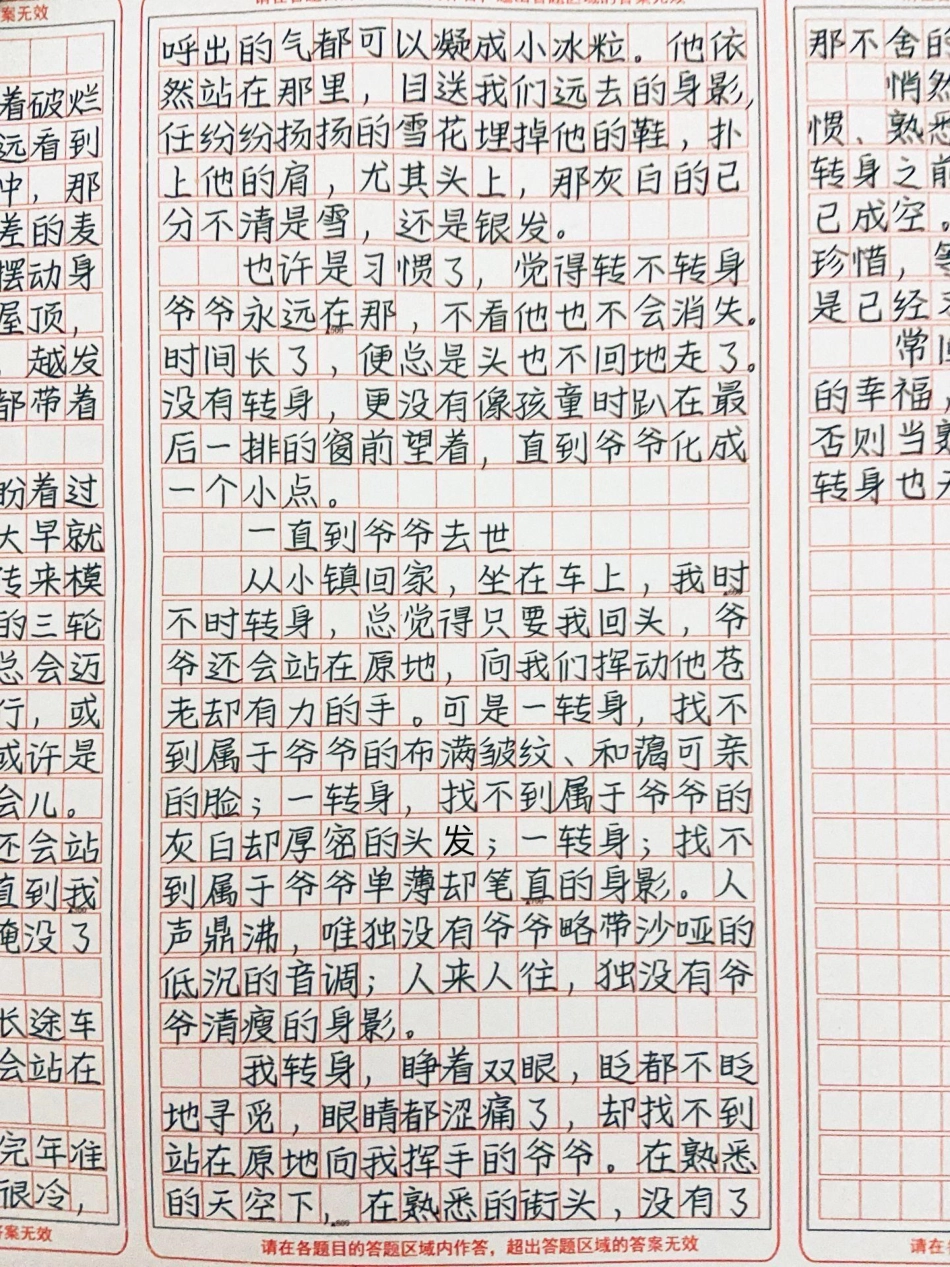 案无效
着破烂
远看到
冲，那
差的麦
摆动身
屋顶，
越发
都带着
盼着过
大早就
传来模
的三轮
总会迈
行，或
或许是
会儿。
还会站
直到我
淹没了
长途车
会站在
完年准
很冷，
答案无效
请在各题目的答题区域内作答，超出答题区域的答案无效
呼出的气都可以凝成小冰粒。他依
然站在那里，目送我们远去的身影，
任纷纷扬扬的雪花埋掉他的鞋，扑
上他的肩，尤其头上，那灰白的已
分不清是雪，还是银发。
也许是习惯了，觉得转不转身
爷爷永远在那，不看他也不会消失。
时间长了，便总是头也不回地走了。
没有转身，更没有像孩童时趴在最
后一排的窗前望着，直到爷爷化成
一个小点。
一直到爷爷去世
从小镇回家，坐在车上，我时
不时转身，总觉得只要我回头，爷
爷还会站在原地，向我们挥动他苍
老却有力的手。可是一转身，找不
到属于爷爷的布满皱纹、和蔼可亲
的脸；一转身，找不到属于爷爷的
灰白却厚密的头发；一转身；找不
到属于爷爷单薄却笔直的身影。人
声鼎沸，唯独没有爷爷略带沙哑的
低沉的音调；人来人往，独没有爷
爷清瘦的身影。
我转身，睁着双眼，眨都不眨
地寻觅，眼睛都涩痛了，却找不到
站在原地向我挥手的爷爷。在熟悉
的天空下，在熟悉的街头，没有了
请在各题目的答题区域内作答，超出答题区域的答案无效
那不舍的
悄然
惯、熟悉
转身之前
已成空。
珍惜，等
是已经
常回
的幸福，
否则当
转身也
请在各